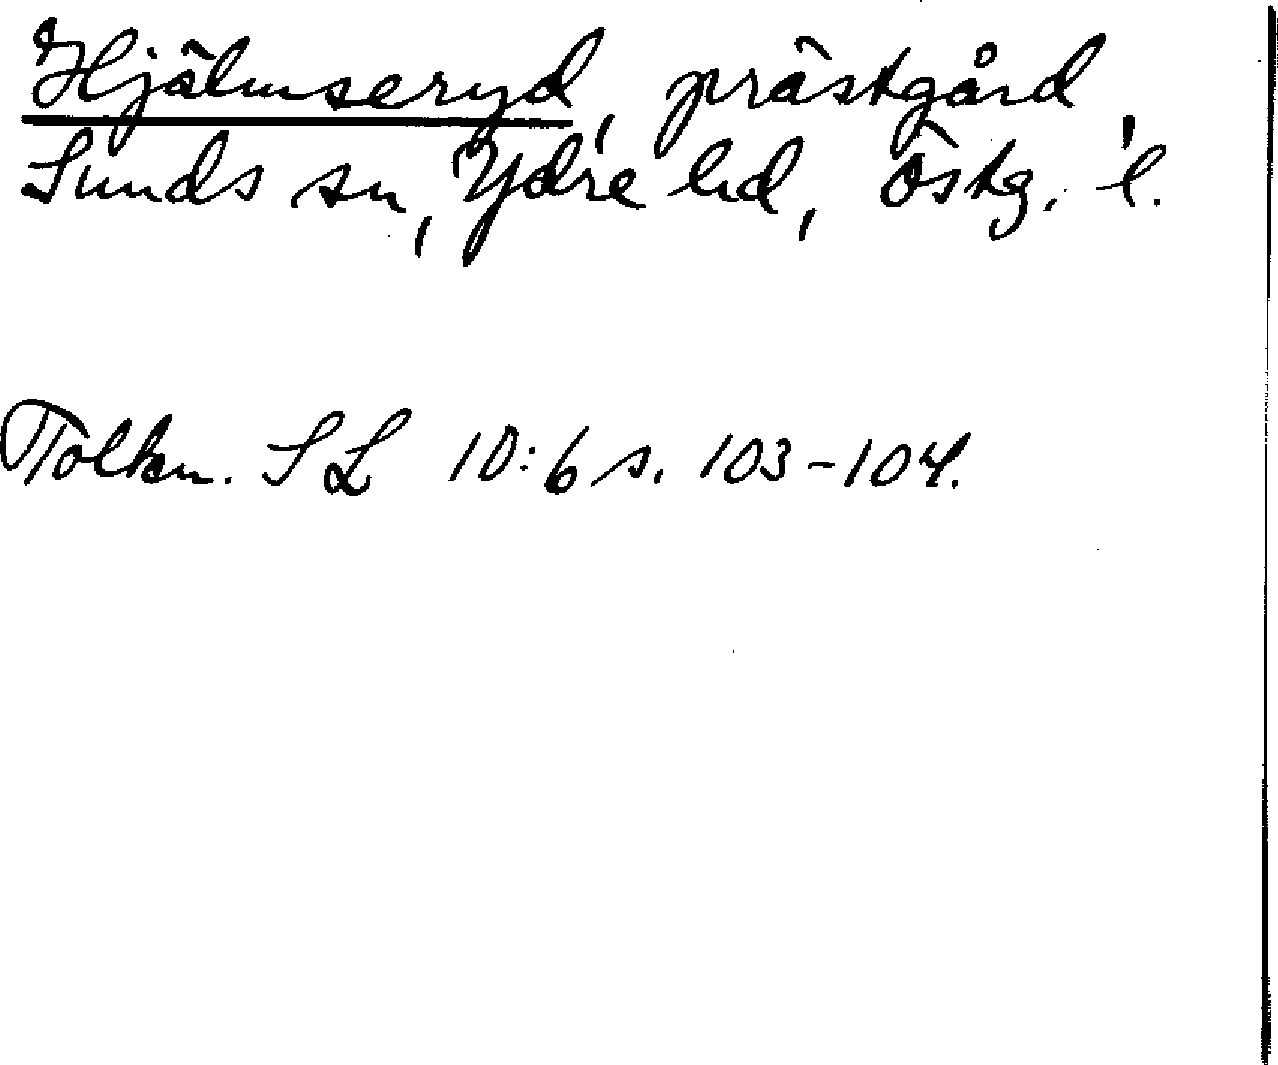 Hjälmseryd, prästgård,
Sunds sn, Ydre hd, Östg. l.
Tolkn. SL 10:6 s. 103-104.